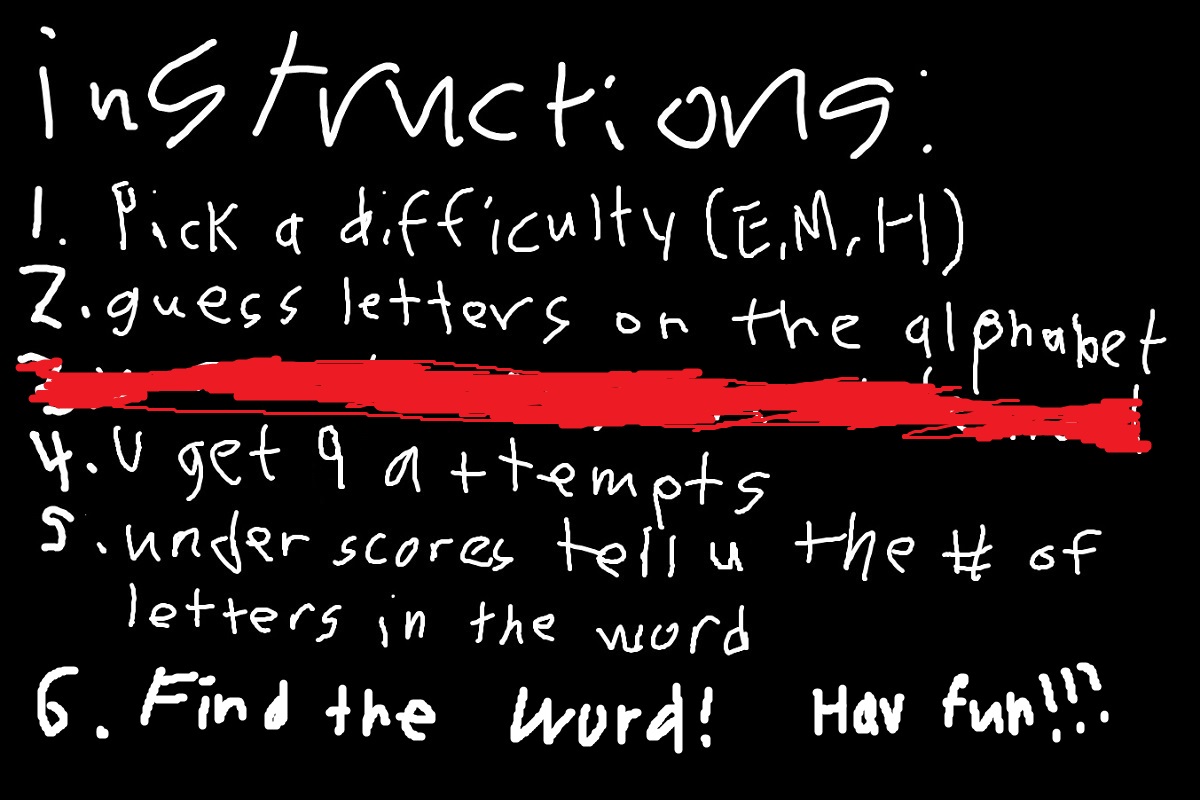 instructions:
1. Pick a difficulty (E,M,H)
2. guess letters on the alphabet
4. U get 9 attempts
5. underscores tell u the # of
letters in the word
6. Find the word! Hav fun!!!